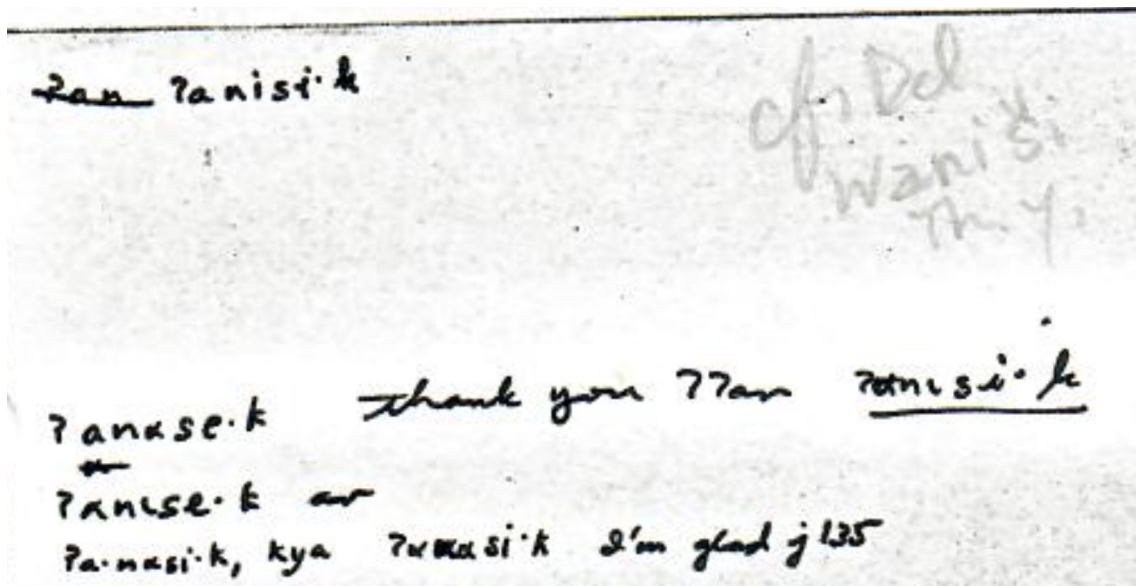 ʔan ʔanisi·k
cf. Del
wanĭši
Th. Y.
ʔanɑse·k thank you ʔʔan ʔɑnɩsi·k
ʔɑnɩse·k ar
ʔa·nɑsi·k, kya I'm glad j135